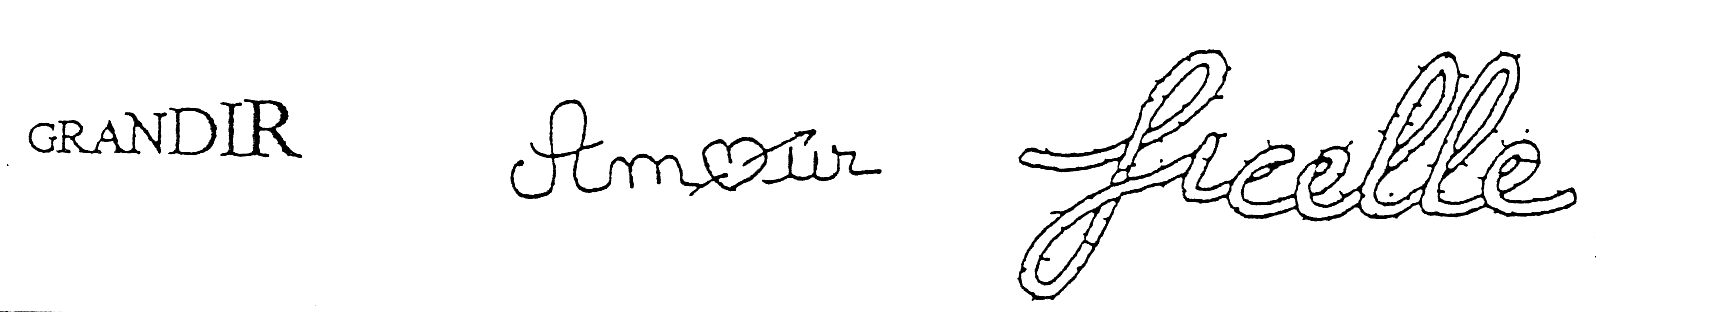 GRANDIR Amour ficelle